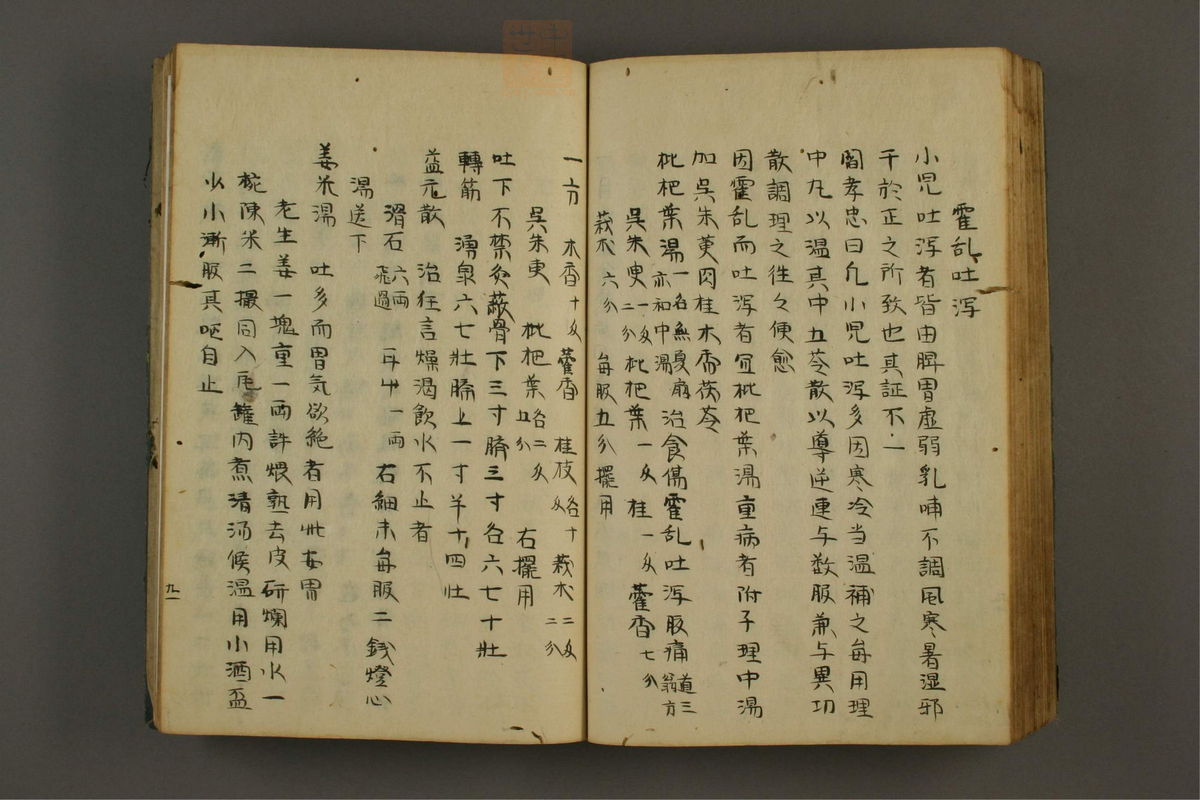 霍乱吐泻
小児吐泻者皆由脾胃虚弱乳哺不調風寒暑湿邪
干於正之所致也其証不一
閻孝忠曰凢小児吐泻多因寒冷当温補之每用理
中丸以温其中五苓散以導逆連与数服兼与異功
散調理之徃々便愈
因霍乱而吐泻者宜枇杷葉湯重病者附子理中湯
加呉朱萸肉桂木香茯苓
枇杷葉湯一名無夏扇亦和中湯 治食傷霍乱吐泻腹痛道三翁方
呉朱臾一匁二分 枇杷葉一匁 桂一匁 藿香七分
莪朮六分 每服五分擺用
一方 木香十匁 藿香 桂枝各十匁 莪朮二匁二分
呉朱臾 枇杷葉各二匁五分 右擺用
吐下不禁灸蔽骨下三寸臍三寸各六七十壯
轉筋 湧泉六七壯臍上一寸半十四壯
益元散 治狂言燥渇飲水不止者
滑石六両飛過 甘艸一両 右細末每服二銭燈心
湯送下
姜米湯 吐多而胃気欲絶者用此安胃
老生姜一塊重一両許煨熟去皮研爛用水一
椀陳米二撮同入瓦罐内煮清湯候温用小酒盃
小小漸服其呕自止
九